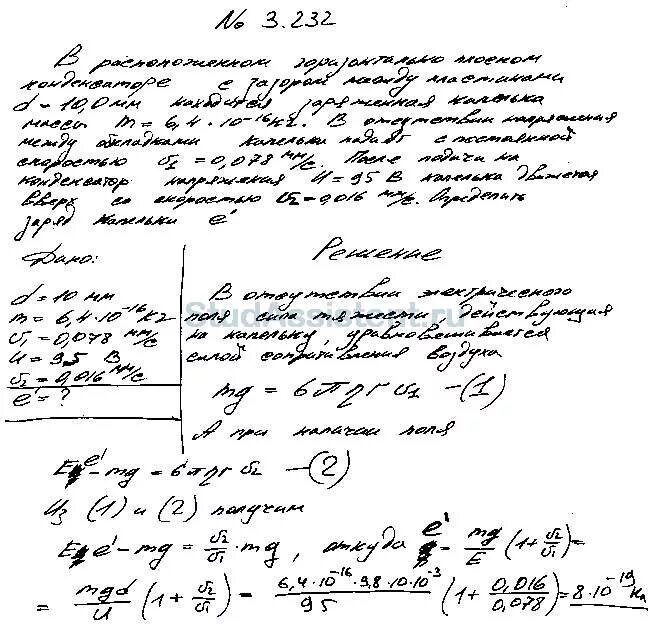 № 3.232
В расположенном горизонтально плоском
конденсаторе с зазором между пластинами
d = 10,0 мм находится заряженная капелька
массы m = 6,4 · 10⁻¹⁶ кг. В отсутствии напряжения
между обкладками капелька падает с постоянной
скоростью υ₁ = 0,078 мм/с. После подачи на
конденсатор напряжения U = 95 В капелька движется
вверх со скоростью υ₂ = 0,016 мм/с. Определить
заряд капельки e'
Дано:
d = 10 мм
m = 6,4 · 10⁻¹⁶ кг
υ₁ = 0,078 мм/с
U = 95 В
υ₂ = 0,016 мм/с
e' = ?
Решение
В отсутствии электрического
поля сила тяжести действующая
на капельку, уравновешивается
силой сопротивления воздуха
mg = 6πηr υ₁ —(1)
А при наличии поля
E e' - mg = 6πηr υ₂ —(2)
Из (1) и (2) получим
E e' - mg = υ₂/υ₁ · mg, откуда e' = mg/E (1 + υ₂/υ₁) =
= mgd/U (1 + υ₂/υ₁) = 6,4·10⁻¹⁶·9,8·10·10⁻³/95 (1 + 0,016/0,078) = 8·10⁻¹⁹ Кл
StudAssistent.ru